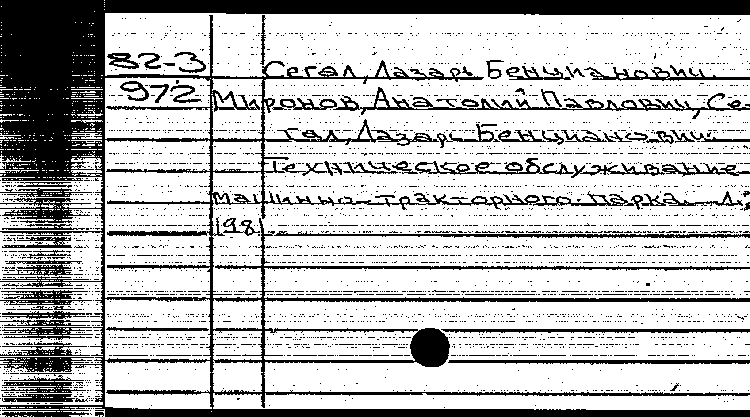 82-3 Сегал, Лазарь Бенцианович.
972 Миронов, Анатолий Павлович, Се-
гал, Лазарь Бенцианович.
Техническое обслуживание
машинно-тракторного парка. Л.,
1981